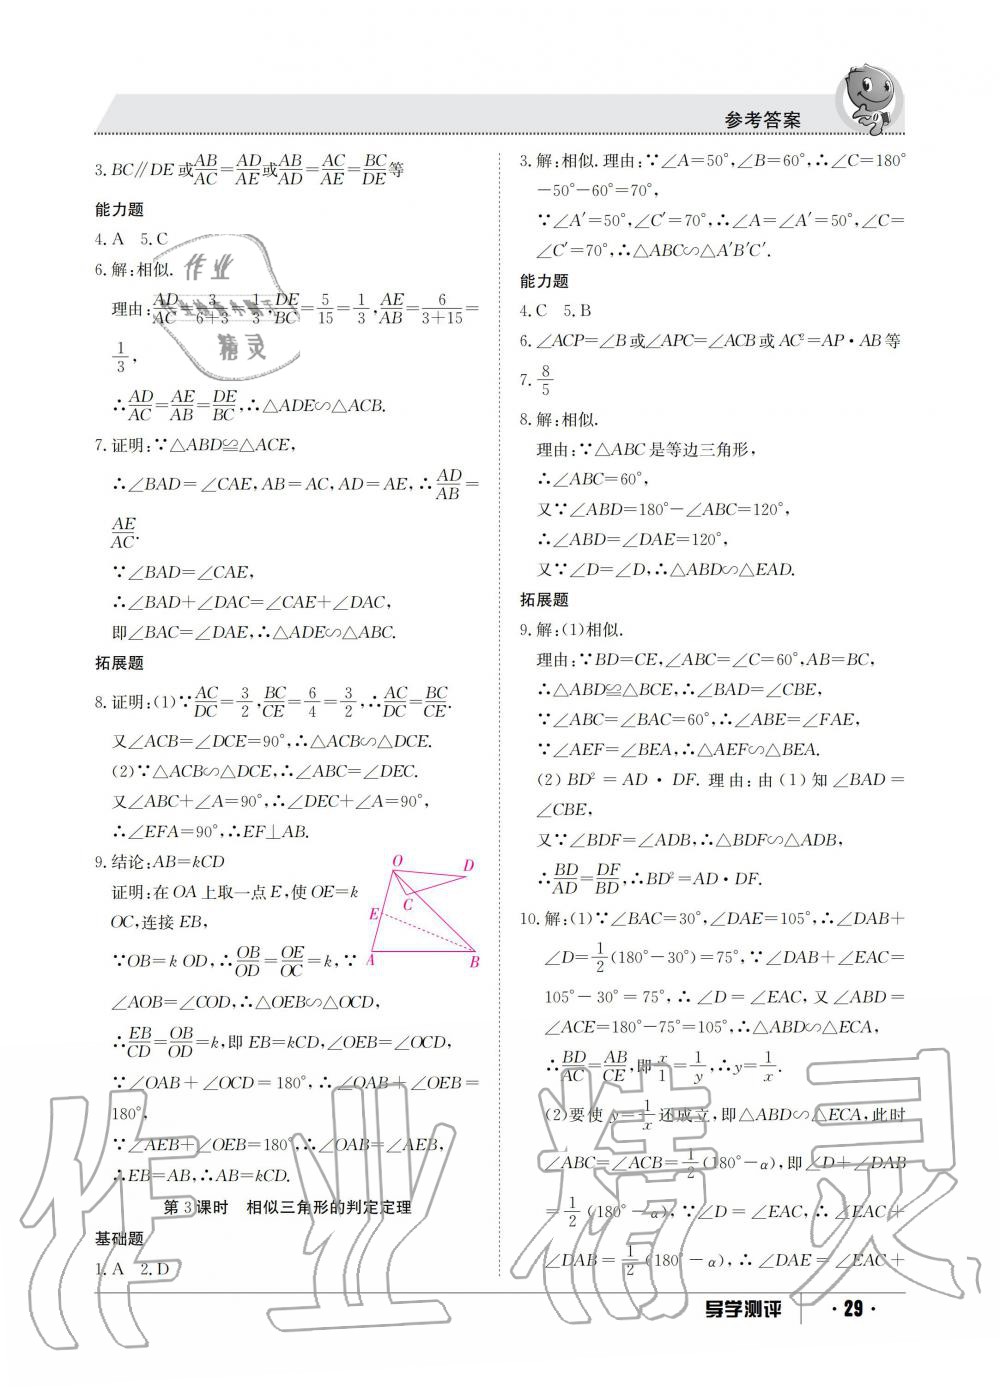 参考答案
3. BC∥DE或AB/AC=AD/AE或AB/AD=AC/AE=BC/DE等
能力题
4. A 5. C
6. 解:相似.
理由:AD/AC=3/(6+3)=1/3,DE/BC=5/15=1/3,AE/AB=6/(3+15)=
1/3,
∴AD/AC=AE/AB=DE/BC,∴△ADE∽△ACB.
7. 证明:∵△ABD≌△ACE,
∴∠BAD=∠CAE,AB=AC,AD=AE,∴AD/AB=
AE/AC.
∵∠BAD=∠CAE,
∴∠BAD+∠DAC=∠CAE+∠DAC,
即∠BAC=∠DAE,∴△ADE∽△ABC.
拓展题
8. 证明:(1)∵AC/DC=3/2,BC/CE=6/4=3/2,∴AC/DC=BC/CE.
又∠ACB=∠DCE=90°,∴△ACB∽△DCE.
(2)∵△ACB∽△DCE,∴∠ABC=∠DEC.
又∠ABC+∠A=90°,∴∠DEC+∠A=90°,
∴∠EFA=90°,∴EF⊥AB.
9. 结论:AB=kCD
证明:在OA上取一点E,使OE=k
OC,连接EB,
∵OB=k OD,∴OB/OD=OE/OC=k,∵
∠AOB=∠COD,∴△OEB∽△OCD,
∴EB/CD=OB/OD=k,即EB=kCD,∠OEB=∠OCD,
∵∠OAB+∠OCD=180°,∴∠OAB+∠OEB=
180°,
∵∠AEB+∠OEB=180°,∴∠OAB=∠AEB,
∴EB=AB,∴AB=kCD.
O
D
C
E
A
B
第3课时 相似三角形的判定定理
基础题
1. A 2. D
3. 解:相似.理由:∵∠A=50°,∠B=60°,∴∠C=180°
-50°-60°=70°,
∵∠A′=50°,∠C′=70°,∴∠A=∠A′=50°,∠C=
∠C′=70°,∴△ABC∽△A′B′C′.
能力题
4. C 5. B
6. ∠ACP=∠B或∠APC=∠ACB或AC²=AP·AB等
7. 8/5
8. 解:相似.
理由:∵△ABC是等边三角形,
∴∠ABC=60°,
又∵∠ABD=180°-∠ABC=120°,
∴∠ABD=∠DAE=120°,
又∵∠D=∠D,∴△ABD∽△EAD.
拓展题
9. 解:(1)相似.
理由:∵BD=CE,∠ABC=∠C=60°,AB=BC,
∴△ABD≌△BCE,∴∠BAD=∠CBE,
∵∠ABC=∠BAC=60°,∴∠ABE=∠FAE,
∵∠AEF=∠BEA,∴△AEF∽△BEA.
(2) BD²=AD·DF. 理由:由(1)知∠BAD=
∠CBE,
又∵∠BDF=∠ADB,∴△BDF∽△ADB,
∴BD/AD=DF/BD,∴BD²=AD·DF.
10. 解:(1)∵∠BAC=30°,∠DAE=105°,∴∠DAB+
∠D=1/2(180°-30°)=75°,∵∠DAB+∠EAC=
105°-30°=75°,∴∠D=∠EAC,又∠ABD=
∠ACE=180°-75°=105°,∴△ABD∽△ECA,
∴BD/AC=AB/CE,即x/1=1/y,∴y=1/x.
(2)要使y=1/x还成立,即△ABD∽△ECA,此时
∠ABC=∠ACB=1/2(180°-α),即∠D+∠DAB
=1/2(180°-α),∵∠D=∠EAC,∴∠EAC+
∠DAB=1/2(180°-α),∴∠DAE=∠EAC+
导学测评 ·29·
作业精灵